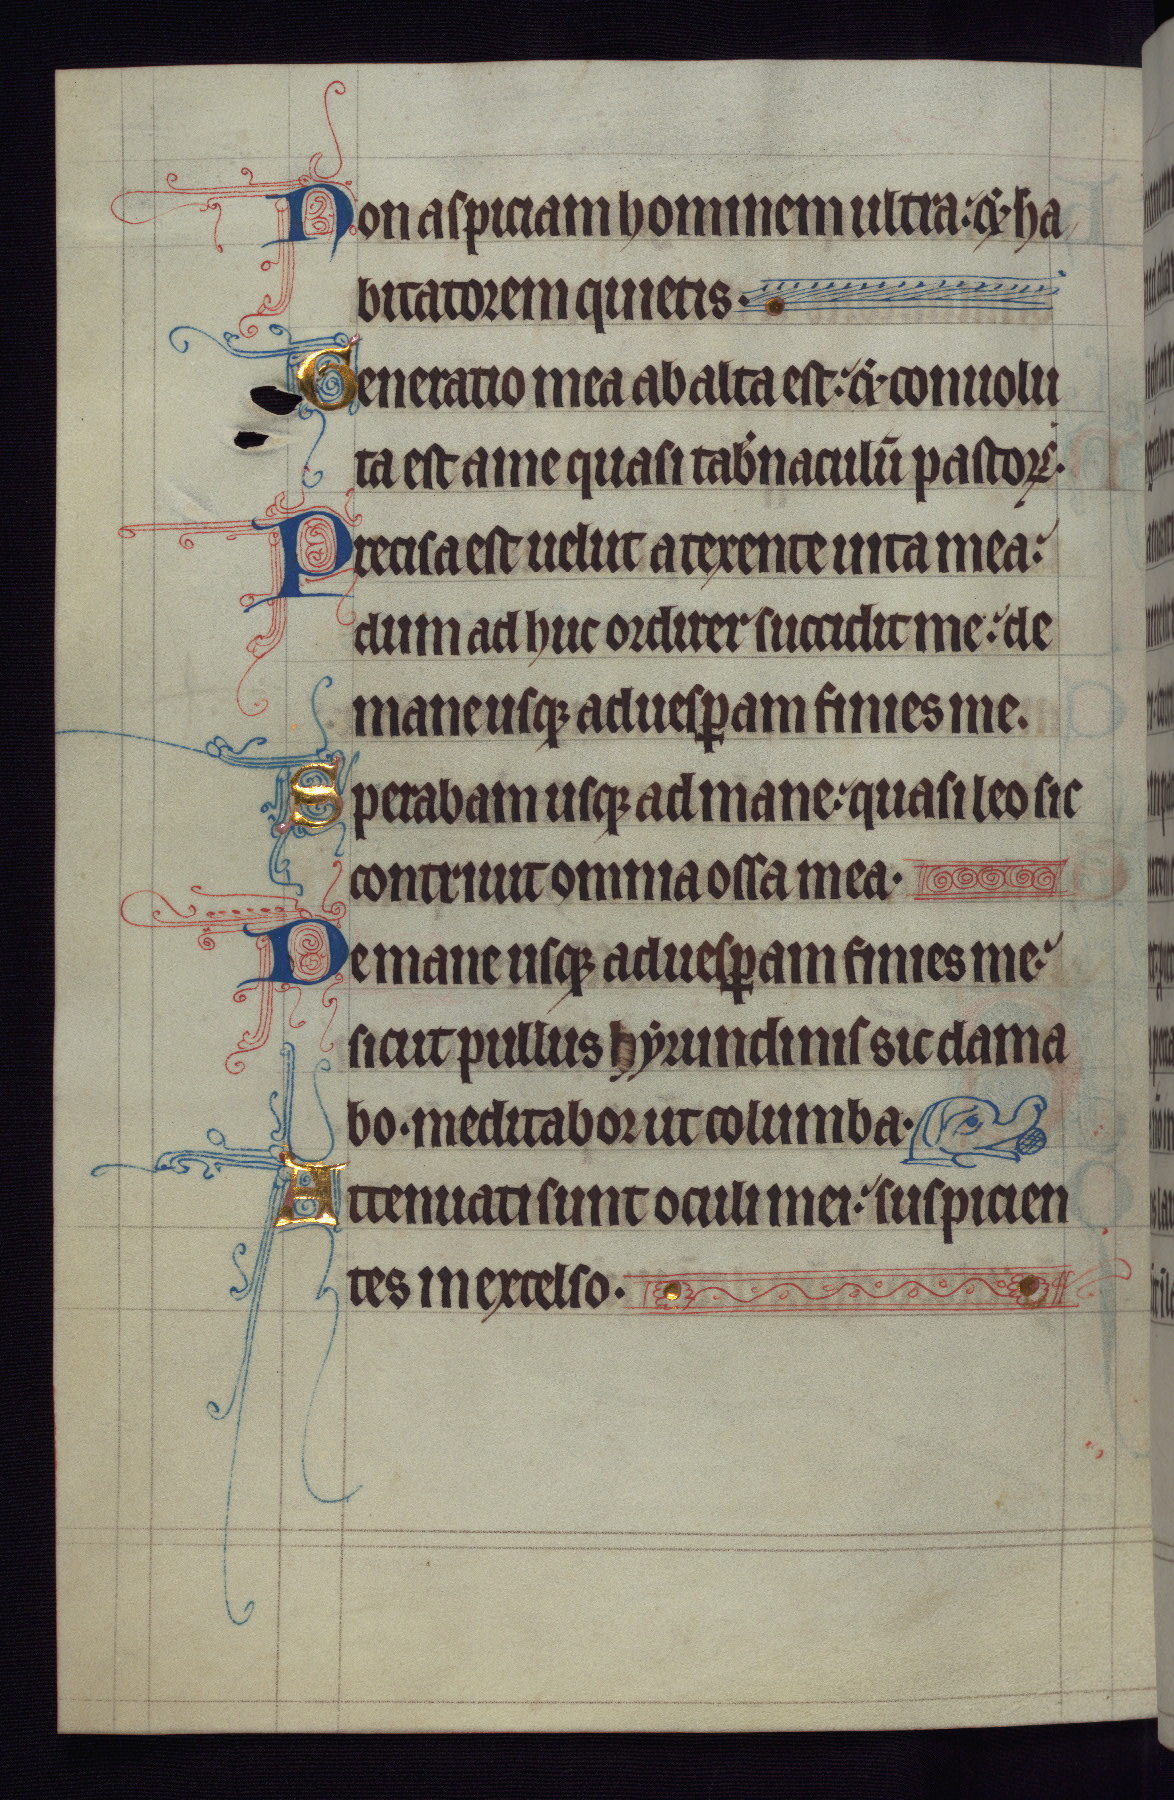 Non aspiciam hominem ultra: & ha
bitatorem quietis.
Generatio mea ablata est: & conuolu
ta est a me quasi tab'naculū pastorꝫ.
Precisa est uelut a texente uita mea:
dum ad huc ordirer succidit me: de
mane usqꝫ ad uesꝑam finies me.
Sperabam usqꝫ ad mane: quasi leo sic
contriuit omnia ossa mea.
De mane usqꝫ ad uesꝑam finies me:
sicut pullus hẏrundinis sic clama
bo. meditabor ut columba.
Attenuati sunt oculi mei: suspicien
tes in excelso.